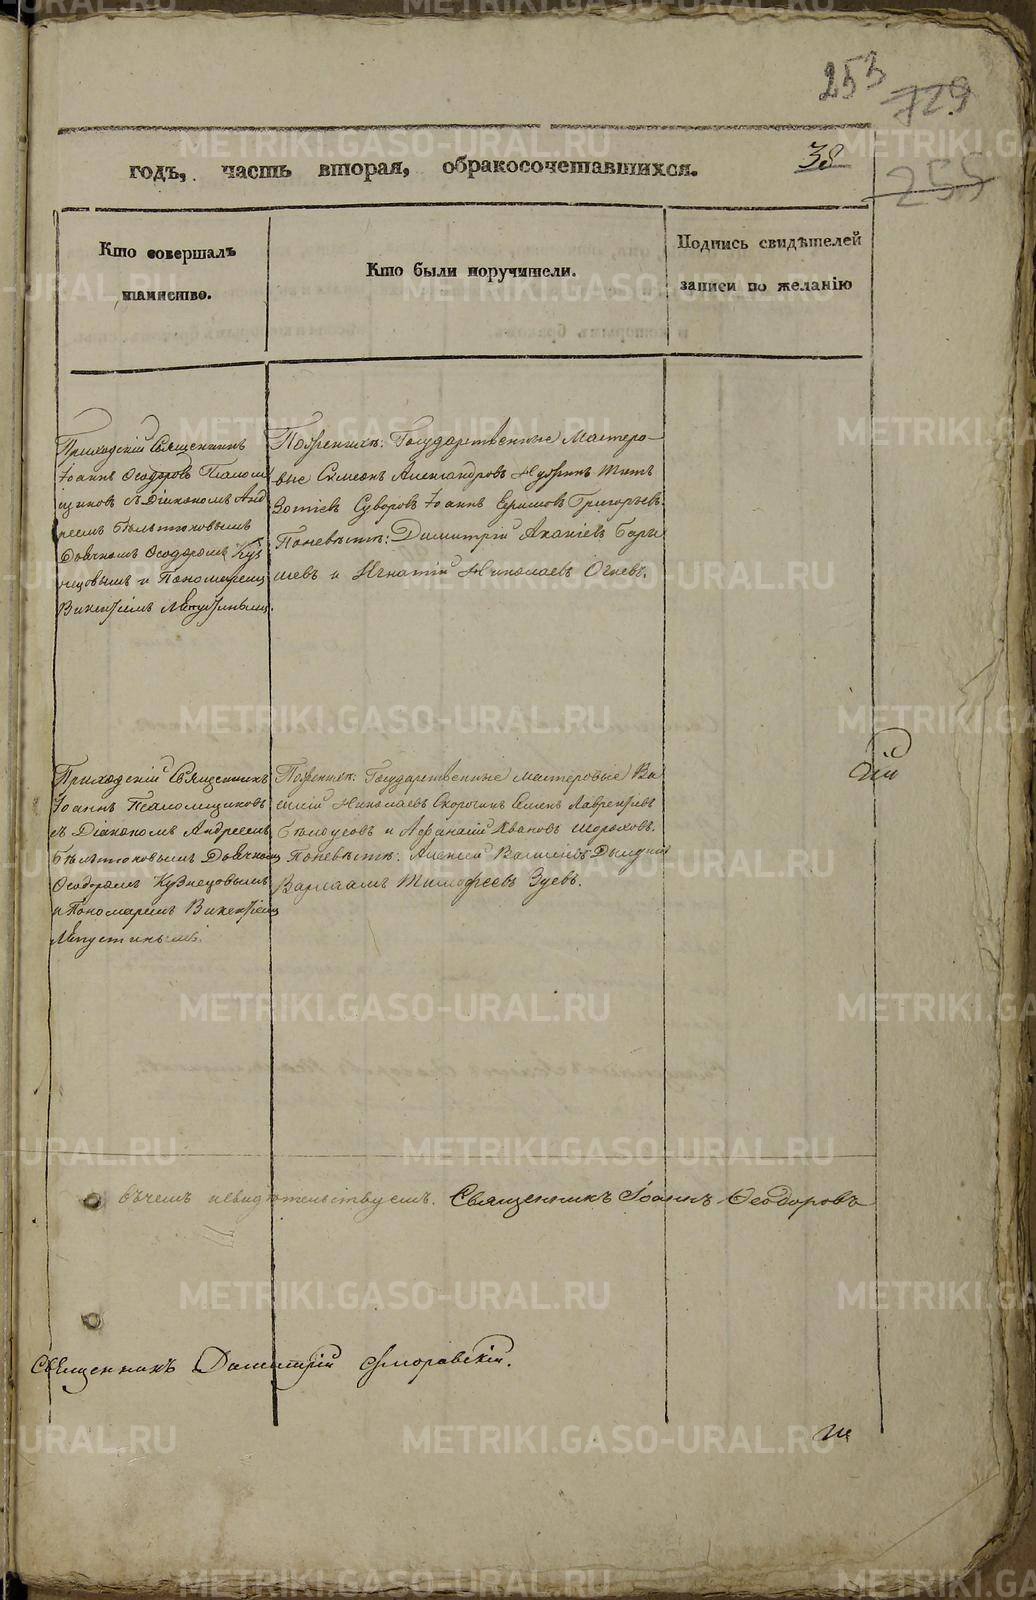 253
729
годъ, часть вторая, обракосочетавшихся.
38
255
Кто совершалъ
таинство.
Кто были поручители.
Подпись свидѣтелей
записи по желанію
Приходскій Священникъ
Іоаннъ Ѳеодоровъ Псаломщиковъ
съ Діакономъ Андреемъ
Бѣльтюковымъ
Дьячкомъ Ѳеодоромъ Кузнецовымъ
и Пономаремъ
Викентіемъ
По женихѣ: Государственные Мастеровые
Симеонъ Александровъ Титъ
Зотіевъ Суворовъ Іоаннъ Григорьевъ.
По невѣстѣ: Димитрій
и Игнатій Николаевъ Огневъ.
Приходскій Священникъ
Іоаннъ Псаломщиковъ
съ Діакономъ Андреемъ
Бѣльтюковымъ Дьячкомъ
Ѳеодоромъ Кузнецовымъ
и Пономаремъ Викентіемъ
По женихѣ: Государственные мастеровые Василій
Николаевъ Скорочкинъ Семенъ Лаврентіевъ
Бѣлоусовъ и Афанасій Ивановъ Шороховъ.
По невѣстѣ: Алексѣй
Варлаамъ Тимофеевъ Зуевъ.
въ чемъ и свидѣтельствуемъ. Священникъ Іоаннъ Ѳеодоровъ
Священникъ Димитрій
METRIKI.GASO-URAL.RU